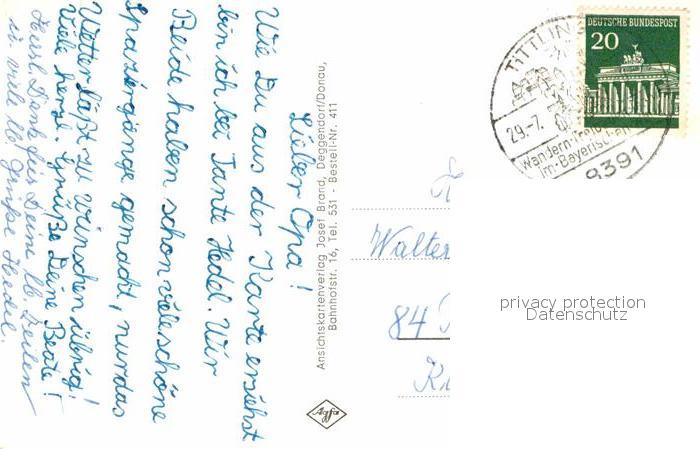 Lieber Opa!
Wie Du aus der Karte ersiehst
bin ich bei Tante Hedel. Wir
Beide haben schon viele schöne
Spaziergänge gemacht, nur das
Wetter läßt zu wünschen übrig!
Viele herzl. Grüße Deine Beate!
Herzl. Dank für Deine lb. Zeilen
u. viele lb. Grüße Hedel.
Ansichtskartenverlag Josef Brand, Deggendorf/Donau,
Bahnhofstr. 16, Tel. 531 - Bestell-Nr. 411
Agfa
DEUTSCHE BUNDESPOST
20
TITTLING
29.-7.
Wandern
im Bayerischen
8391
Walter
84
privacy protection
Datenschutz